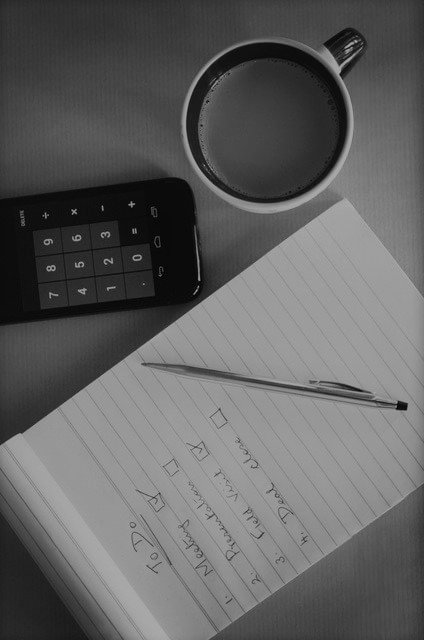 DELETE
7 8 9 ÷
4 5 6 ×
1 2 3 −
. 0 = +
To Do
1. Meeting ☑
2. Presentation ☐
3. Field Visit ☑
4. Deal close ☐